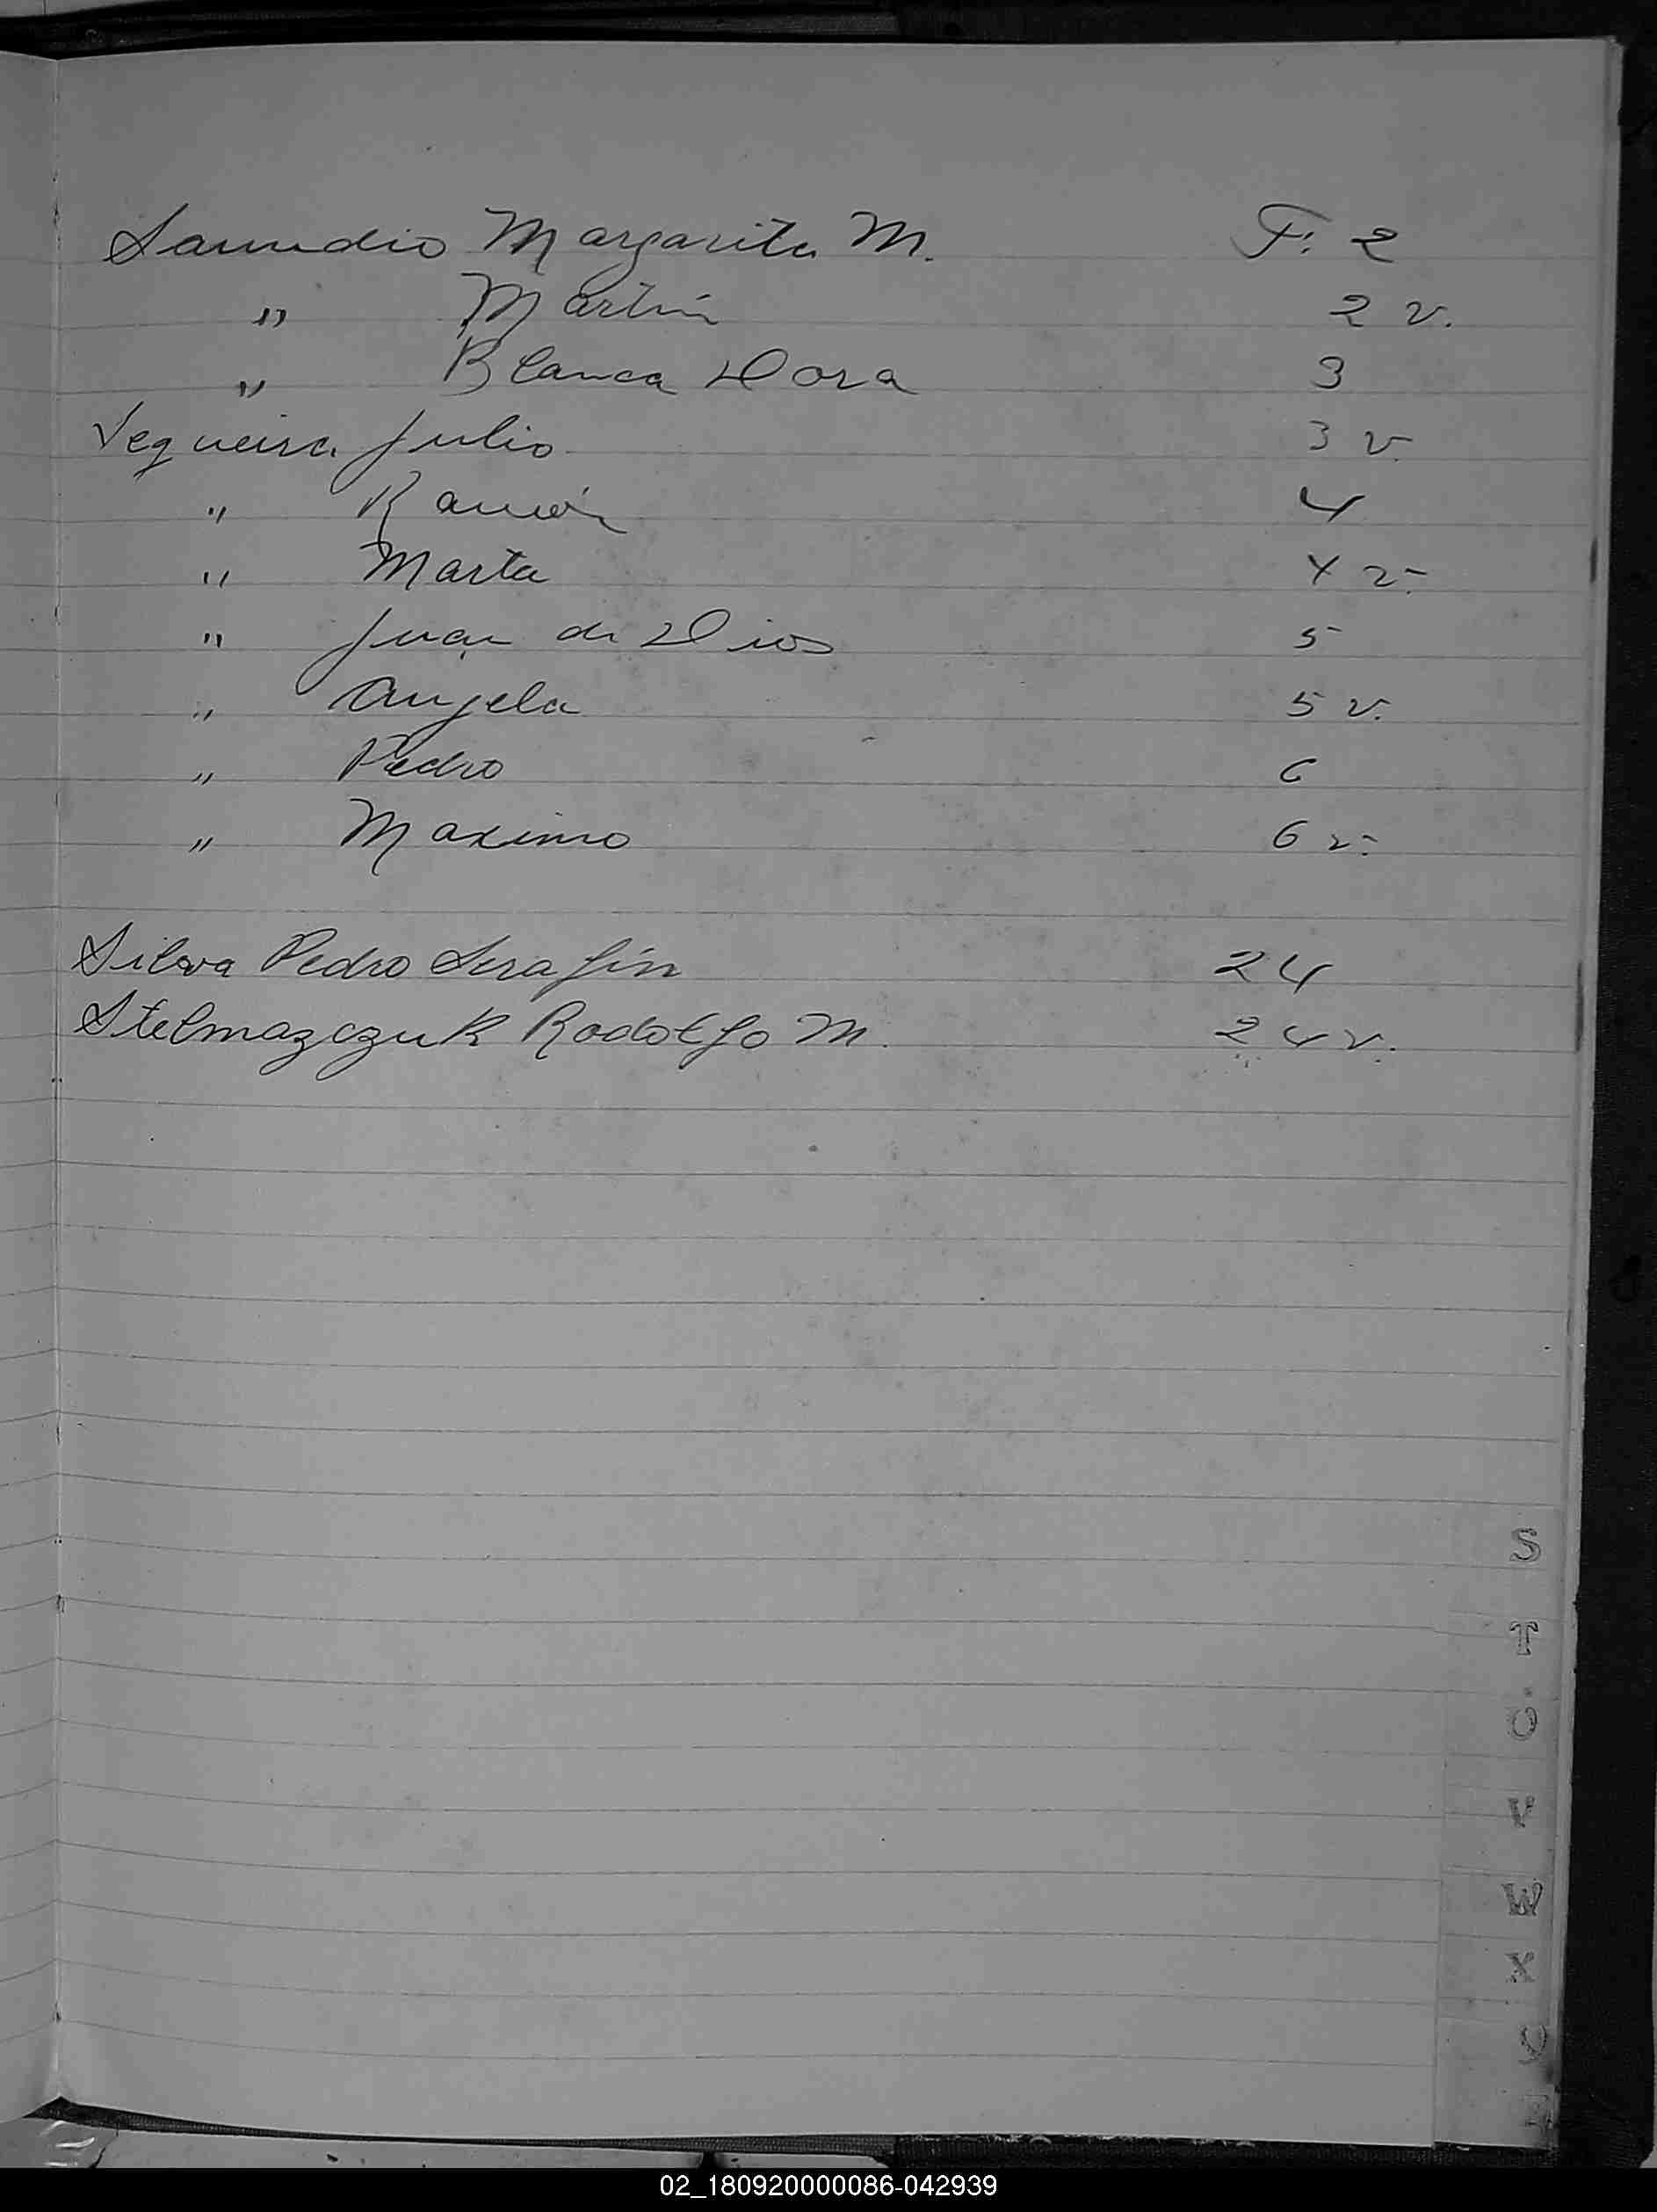 Samudio Margarita M. F. 2
" Martín 2 v.
" Blanca Dora 3
Sequeira Julio 3 v.
" Ramón 4
" Marta 4 v.
" Juan de Dios 5
" Angela 5 v.
" Pedro 6
" Maximo 6 v.
Silva Pedro Serafín 24
Stelmazczuk Rodolfo M. 24 v.
S
T
U
V
W
X
Y
02_180920000086-042939